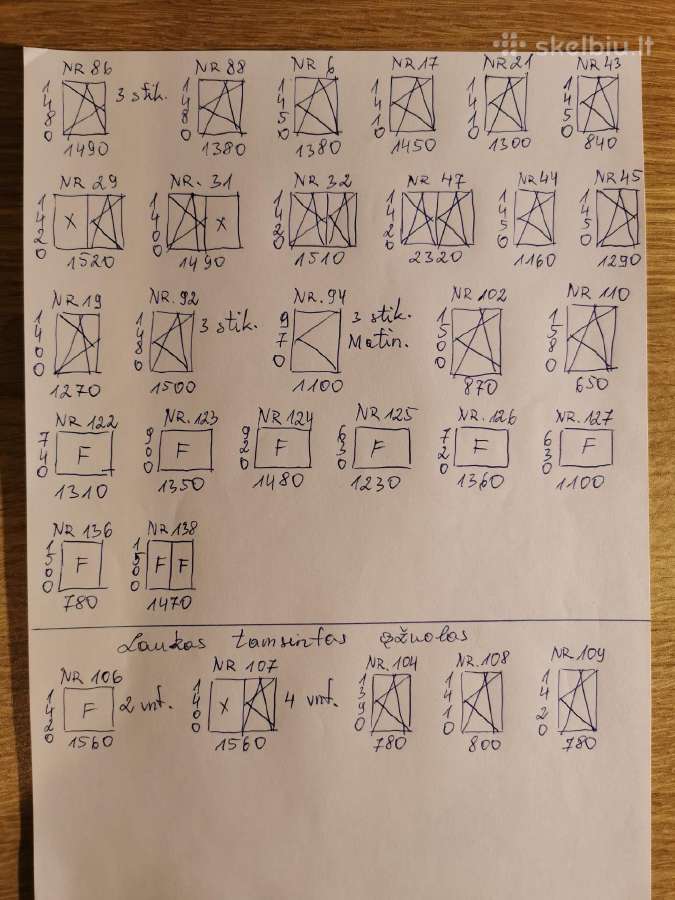 skelbiu.lt
NR 86 NR 88 NR 6 NR 17 NR 21 NR 43
1480 3 stik. 1480 1450 1410 1410 1450
1490 1380 1380 1450 1300 840
NR 29 NR. 31 NR 32 NR 47 NR 44 NR 45
1420 X 1400 X 1420 1420 1450 1450
1520 1490 1510 2320 1160 1290
NR 19 NR. 92 NR. 94 NR 102 NR 110
1400 1480 3 stik. 970 3 stik. Matin. 1500 1580
1270 1500 1100 870 650
NR 122 NR. 123 NR 124 NR 125 NR. 126 NR. 127
740 F 900 F 920 F 630 F 720 F 630 F
1310 1350 1480 1230 1360 1100
NR 136 NR 138
1500 F 1500 F F
780 1470
Laukas tamsintas ąžuolas
NR 106 NR 107 NR 104 NR 108 NR 109
1420 F 2 vnt. 1400 X 4 vnt. 1390 1410 1420
1560 1560 780 800 780